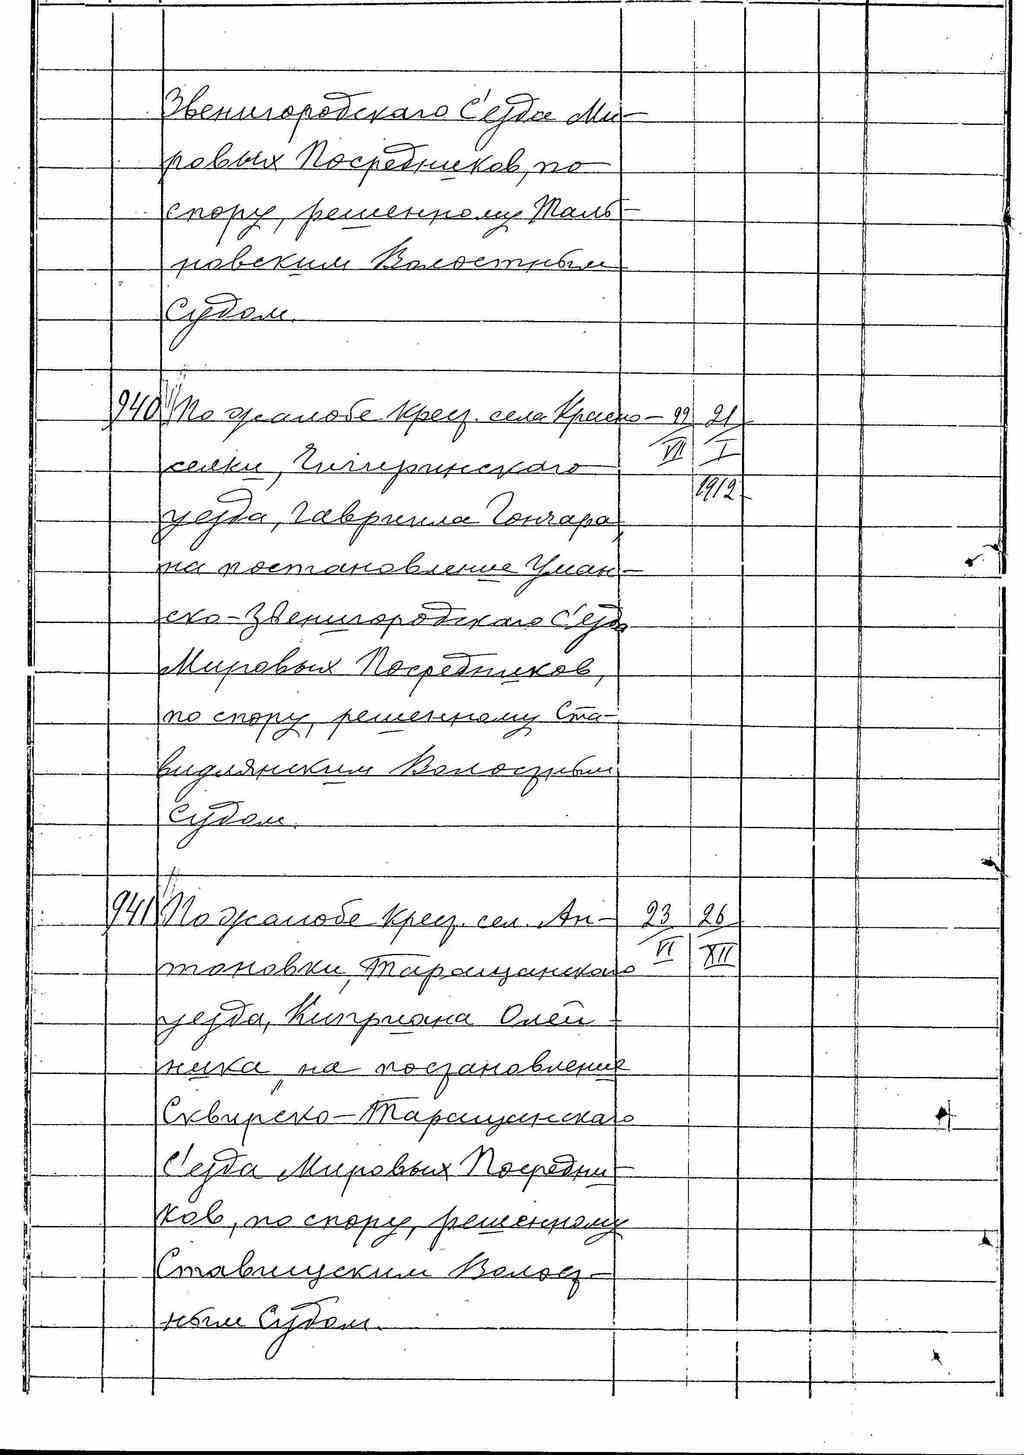 Звенигородскаго С'езда Ми-
ровых Посредников, по
спору, решенному Таль-
новским Волостным
Судом.
940 По жалобе крест. села Красно- 22 21
селки, Чигиринскаго VII I
1912
уезда, Гавриила Гончара,
на постановление Уман-
ско-Звенигородскаго С'езда
Мировых Посредников,
по спору, решенному Ста-
видлянским Волостным
Судом.
941 По жалобе крест. сел. Ан- 23 26
тоновки, Таращанскаго VI XII
уезда, Киприана Олей-
ника, на постановление
Сквирско-Таращанскаго
С'езда Мировых Посредни-
ков, по спору, решенному
Ставищским Волост-
ным Судом.